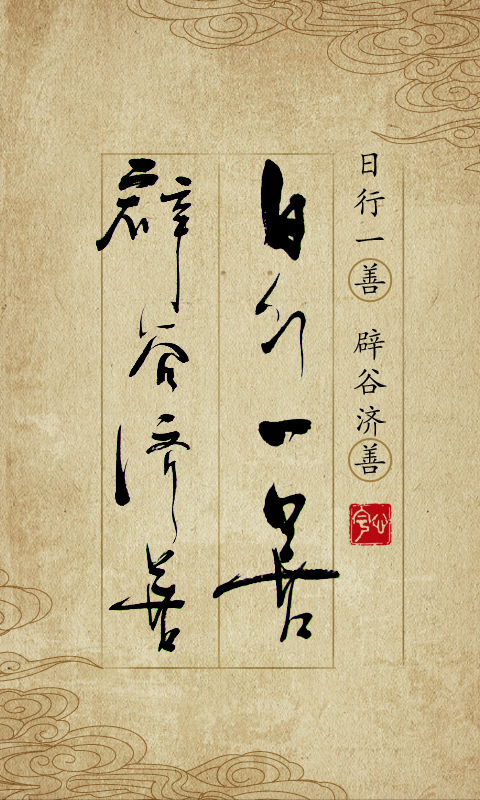 日行一善 辟谷济善
日行一善
辟谷济善